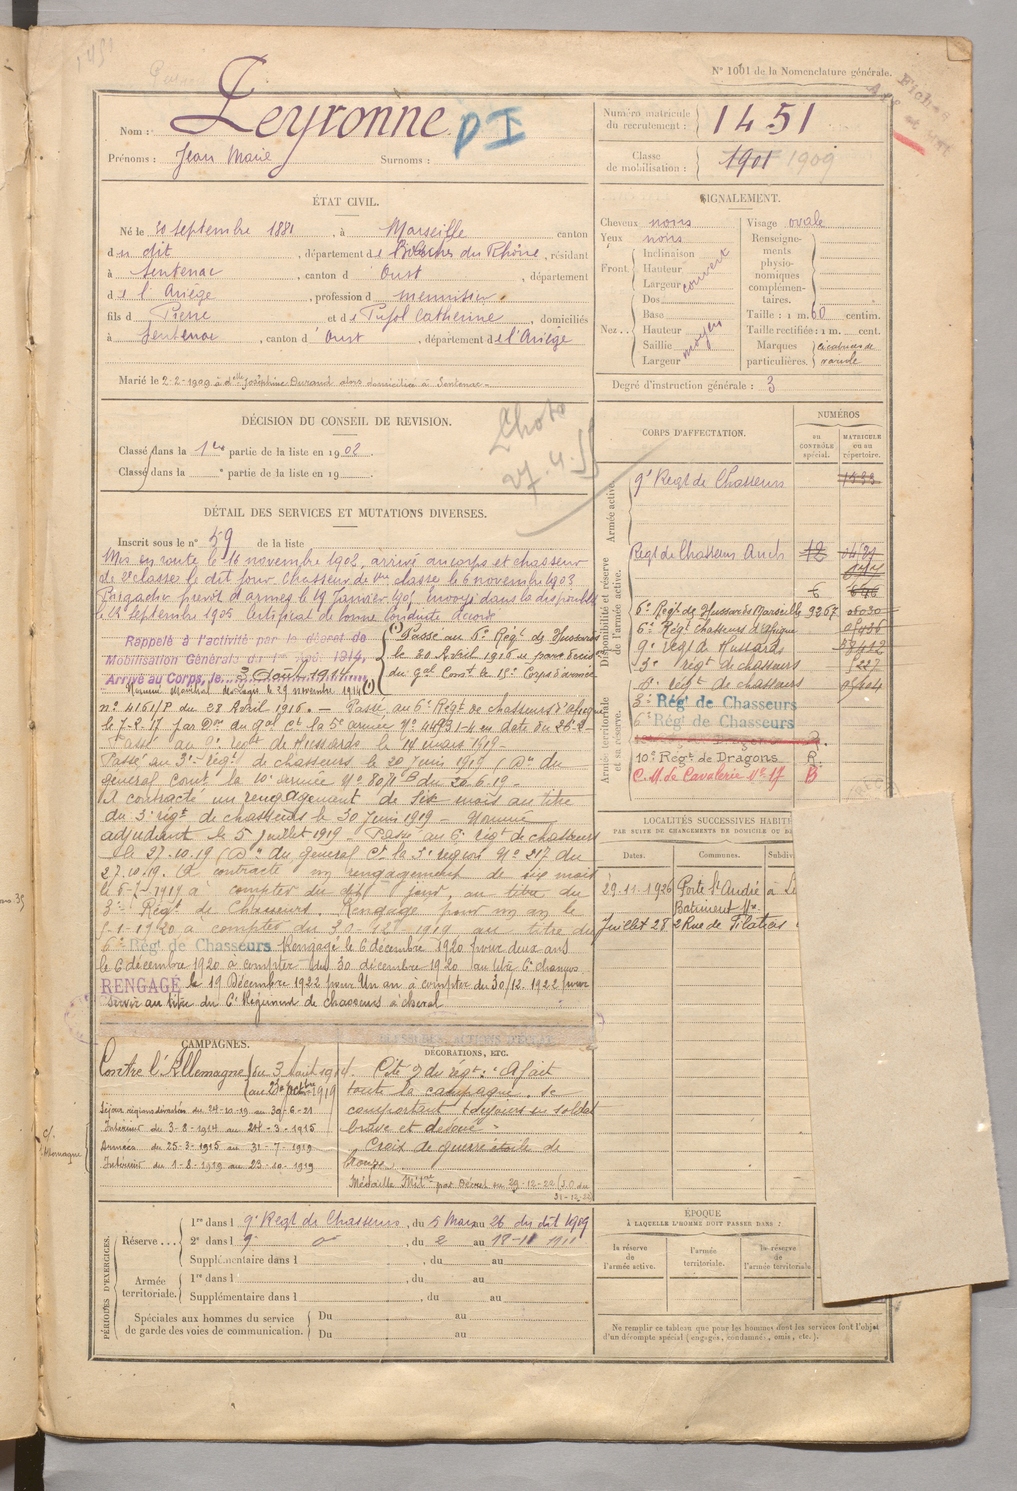 N° 1001 de la Nomenclature générale.
Nom : Leyronne DI
Prénoms : Jean Marie Surnoms :
Numéro matricule du recrutement : 1451
Classe de mobilisation : 1901 1909
ÉTAT CIVIL.
Né le 30 septembre 1881, à Marseille canton
du dit, département des Bouches du Rhône, résidant
à Sentenac, canton d'Oust, département
de l'Ariège, profession de menuisier
fils de Pierre et de Pujol Catherine, domiciliés
à Sentenac, canton d'Oust, département de l'Ariège
Marié le 2-2-1909 à dlle Joséphine Durand alors domiciliée à Sentenac
SIGNALEMENT.
Cheveux noirs
Yeux noirs
Front Inclinaison
Hauteur
Largeur couvert
Nez Dos
Base
Hauteur
Saillie
Largeur moyen
Visage ovale
Renseignements physionomiques complémentaires.
Taille : 1 m. 60 centim.
Taille rectifiée : 1 m. cent.
Marques particulières.
Degré d'instruction générale : 3
DÉCISION DU CONSEIL DE REVISION.
Classé dans la 1re partie de la liste en 1902.
Classé dans la " partie de la liste en 19
Photo
27.4.
DÉTAIL DES SERVICES ET MUTATIONS DIVERSES.
Inscrit sous le n° 59 de la liste
Mis en route le 16 novembre 1902, arrivé au corps et chasseur
de 2e classe le dit jour Chasseur de 1re classe le 6 novembre 1903
Brigadier prévôt d'armes le 19 Janvier 1905 envoyé dans la disponibilité
le 12 Septembre 1905 Certificat de bonne Conduite Accordé
Rappelé à l'activité par le décret de
Mobilisation Générale du 1er Août 1914,
Arrivé au Corps, le 3 Août 1914
Nommé Maréchal des Logis le 29 novembre 1914 (1)
(1) Passé au 6e Régt de Hussards
le 30 Avril 1916
du gal Comt la 15e Corps d'armée
n° 4161/P du 28 Avril 1916. — Passé au 6e Régt de Chasseurs d'afrique
le 7-2-17 par Don du gal Ct la 5e armée N° 4493 1-4 en date du
Passé au 9e régt de Hussards le 14 mars 1919 —
Passé au 3e régt de chasseurs le 20 juin 1919 (Don du
général Comt la 10e armée N° 8078 B du 20-6-19 —
A contracté un rengagement de Six mois au titre
du 3e régt de chasseurs le 30 Juin 1919 — Nommé
adjudant le 5 Juillet 1919 — Passé au 6e régt de chasseurs
le 27.10.19 (Don du général Ct la région N° 217 du
27.10.19. A contracté un rengagement de six mois
à compter du dit jour, au titre du
3e Régt de Chasseurs. Rengagé pour un an le
5-1-1920 à compter du 30-12-1919 au titre du
6e Régt de Chasseurs Rengagé le 6 décembre 1920 pour deux ans
le 6 décembre 1920 à compter du 30 décembre 1920 au titre 6e
RENGAGÉ le 19 Décembre 1922 pour Un an à compter du 30/12.1922 pour
servir au titre du 6e Régiment de chasseurs à cheval
CORPS D'AFFECTATION.
NUMÉROS
au CONTRÔLE spécial.
MATRICULE ou au répertoire.
Armée active.
9e Régt de Chasseurs
Disponibilité et réserve de l'armée active.
Régt de Chasseurs Auch 12
6e Régt de Hussards Marseille 9267
6e Régt chasseurs d'afrique
9e régt de Hussards
3e régt de chasseurs
régt de chasseurs
Armée territoriale et sa réserve.
3e Régt de Chasseurs
6e Régt de Chasseurs
10e Régt de Dragons R.
C.M. de Cavalerie N° 17 B
LOCALITÉS SUCCESSIVES HABIT
PAR SUITE DE CHANGEMENTS DE DOMICILE OU
Dates. Communes. Subdiv
29.11.1926 Porte St André à
Batiment
Juillet 28 2 Rue de Filatiers
CAMPAGNES.
Contre l'Allemagne du 3 Août 1914
au 23 octobre 1919
du 24-10-19 au 30-6-21
Intérieur du 3-8-1914 au 24-3-1915
Armées du 25-3-1915 au 31-7-1919
Intérieur du 1-8-1919 au 23-10-1919
DÉCORATIONS, ETC.
Cité O du régt : "A fait
toute la campagne, se
comportant toujours en soldat
brave et dévoué"
Croix de guerre étoile de
bronze.
Médaille Mil're par Décret du 29-12-22 (J.O du
31-12-22
PÉRIODES D'EXERCICES.
Réserve
1re dans l 9e Régt de Chasseurs, du 5 Mars au 26 du dit 1909
2e dans l 9e do, du 2 au 18-11 1911
Supplémentaire dans l , du au
Armée territoriale.
1re dans l , du au
Supplémentaire dans l , du au
Spéciales aux hommes du service de garde des voies de communication.
Du au
Du au
ÉPOQUE
À LAQUELLE L'HOMME DOIT PASSER DANS :
la réserve de l'armée active.
l'armée territoriale.
la réserve de l'armée territoriale
Ne remplir ce tableau que pour les hommes dont les services font l'objet
d'un décompte spécial (engagés, condamnés, omis, etc.).